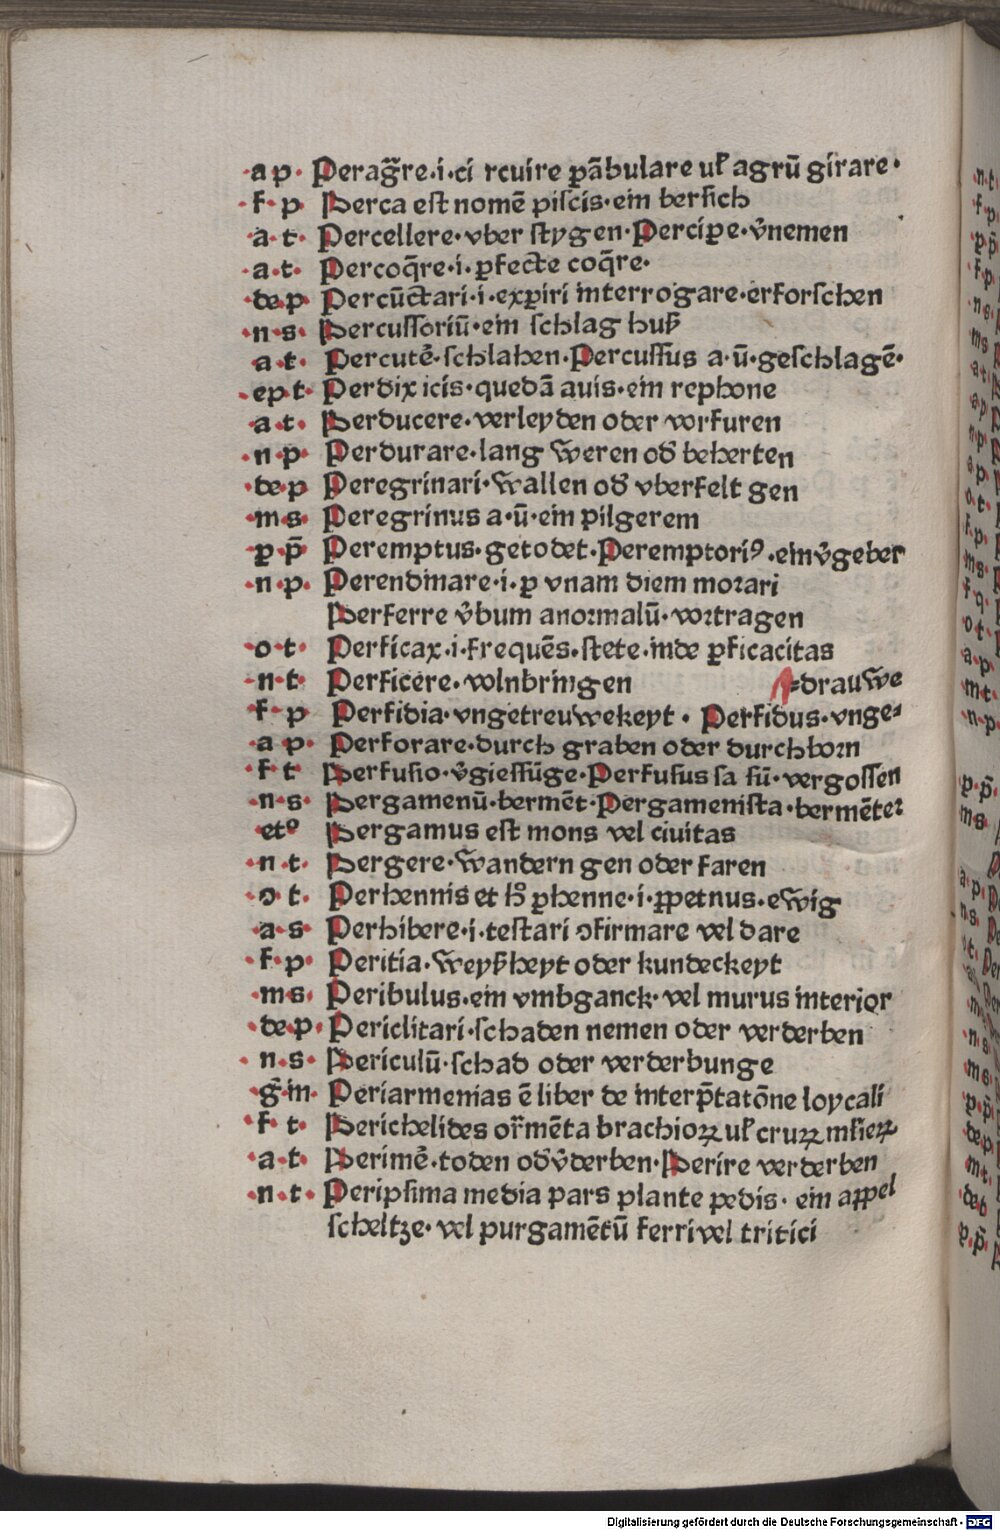 ·a p· Perag̃re·i·ci rcuire ꝑãbulare uł agrũ girare·
·f·p· Perca est nomẽ piscis·ein bersich
·a·t· Percellere·vber stygen·Percipe·v̄nemen
·a·t· Percoq̄re·i·ꝑfecte coq̄re·
·de p Percũctari·i·exꝑiri interrogare·erforschen
·n·s· Percussoriũ·ein schlag huß
a·t· Percutẽ·schlahen·Percussus a·ũ·geschlagẽ·
·ep t· Perdix icis·quedã auis·ein rephone
·a·t· Perducere·verleyden oder vorfuren
·n·p· Perdurare·lang weren od̛ beherten
·de·p Peregrinari·wallen od̛ vberfelt gen
·m·s· Peregrinus a·ũ·ein pilgerem
·ꝑ·p̃· Peremptus·getodet·Peremptoriꝰ·ein v̄geber
·n·p· Perendinare·i·ꝑ vnam diem morari
Perferre v̄bum anormalũ·vortragen
·o·t· Perficax·i·frequẽs·stete·inde ꝑficacitas
·n·t· Perficere·volnbringen ⸗drauwe
·f·p Perfidia·vngetreuwekeyt·Perfidus·vnge⸗
·a p· Perforare·durch graben oder durchborn
·f·t Perfusio·v̄giessũge·Perfusus sa sũ·vergossen
·n·s· Pergamenũ·bermẽt·Pergamenista·bermẽter
etꝰ Pergamus est mons vel ciuitas
·n·t· Pergere·wandern gen oder faren
·o·t· Perhennis et h̄ ꝑhenne·i·ꝑpetnus·ewig
·a·s· Perhibere·i·testari ꝯfirmare vel dare
·f·p· Peritia·weyßheyt oder kundeckeyt
·m s· Peribulus·ein vmbganck·vel murus interior
·de p· Periclitari·schaden nemen oder verderben
·n·s· Periculũ·schad oder verderbunge
·g̃·in· Periarmenias ẽ liber de interp̄tatõne loycali
·f·t· Perichelides or̃mẽta brachioꝝ uł cruꝝ mĺieꝝ
·a·t· Perimẽ·toden od̛ v̄derben·Perire verderben
·n·t· Peripsima media pars plante pedis·ein appel
scheltze·vel purgamẽtũ ferri vel tritici
Digitalisierung gefördert durch die Deutsche Forschungsgemeinschaft - DFG